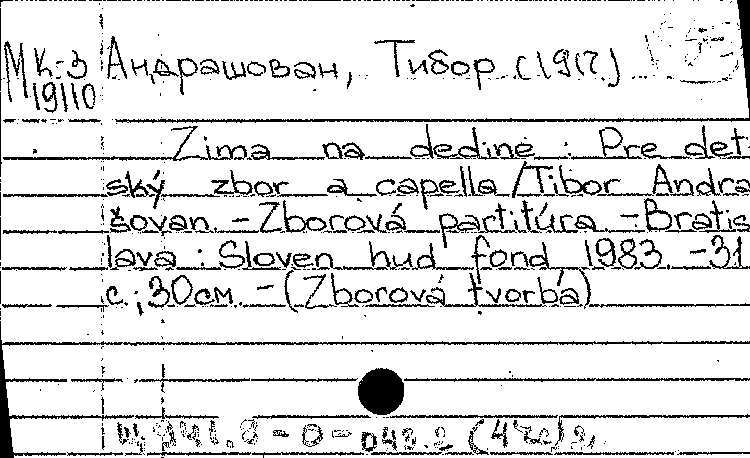 МК-3 Андрашован, Тибор (1917)
19110
Zima na dedine : Pre det-
ský zbor a capella / Tibor Andra
šovan. - Zborová partitúra. - Bratis
lava : Sloven hud fond 1983. - 31
с.; 30см. - (Zborová tvorbá)